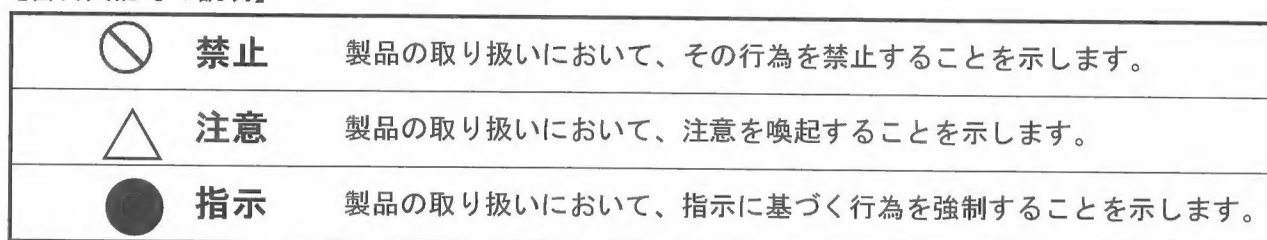 禁止 製品の取り扱いにおいて、その行為を禁止することを示します。
注意 製品の取り扱いにおいて、注意を喚起することを示します。
指示 製品の取り扱いにおいて、指示に基づく行為を強制することを示します。